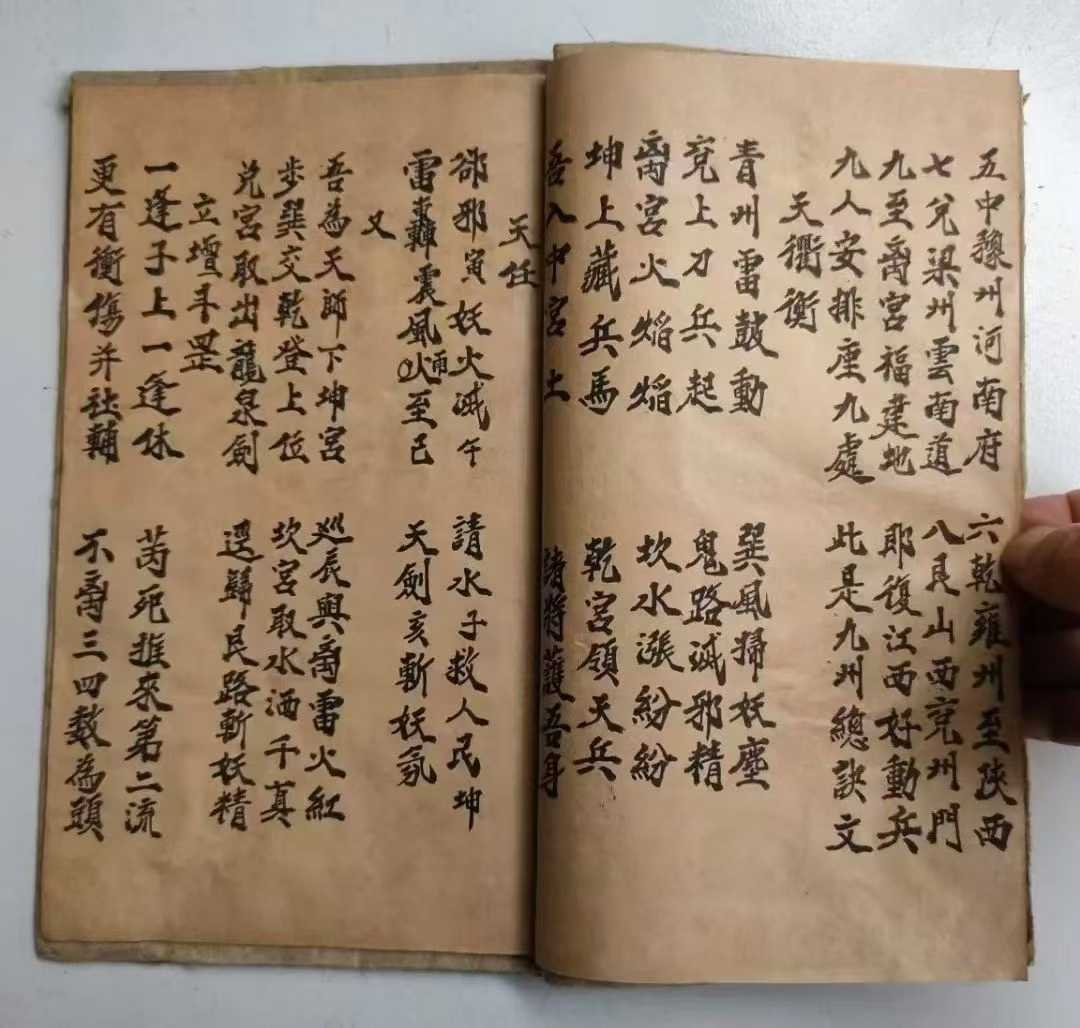 五中豫州河南府 六乾雍州至陝西
七兌梁州雲南道 八艮山西兗州門
九至离宮福建地 耶復江西好動兵
九人安排座九處 此是九州總訣文
天衝衡
青州雷鼓動 巽風掃妖塵
兌上刀兵起 鬼路滅邪精
离宮火焰焰 坎水漲紛紛
坤上藏兵馬 乾宮領天兵
吾入中宮土 諸將護吾身
天任
卻邪寅妖火滅午 請水子救人民坤
雷轟震風雨火至巳 天劍亥斬妖氛
又
吾為天師下坤宮 巡辰與离雷火紅
步巽交乾登上位 坎宮取水洒千真
兌宮取出龍泉劍 還歸艮路斬妖精
立壇斗罡
一逢子上一逢休 芮死推來第二流
更有衝傷并社輔 不离三四數為頭